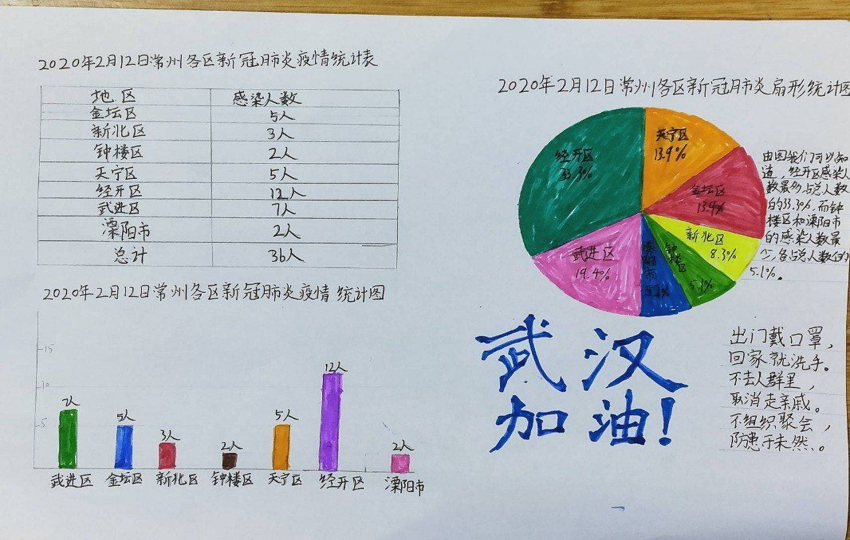 2020年2月12日常州各区新冠肺炎疫情统计表
地区 感染人数
金坛区 5人
新北区 3人
钟楼区 2人
天宁区 5人
经开区 12人
武进区 7人
溧阳市 2人
总计 36人
2020年2月12日常州各区新冠肺炎疫情 统计图
15
10
5
7人
5人
3人
2人
5人
12人
2人
武进区 金坛区 新北区 钟楼区 天宁区 经开区 溧阳市
2020年2月12日常州各区新冠肺炎扇形统计图
天宁区
13.9%
经开区
33.3%
金坛区
13.9%
新北区
8.3%
钟楼区
5.1%
溧阳市
武进区
19.4%
由图我们可以知
道,经开区感染人
数最多占总人数
的33.3%.而钟
楼区和溧阳市
的感染人数最
少,各占总人数的
5.1%。
武汉
加油!
出门戴口罩,
回家就洗手。
不去人群里,
取消走亲戚。
不组织聚会,
防患于未然。